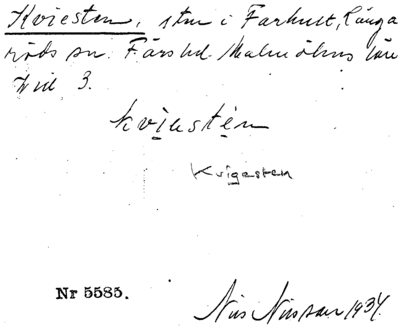 Kviesten, stn i Farhult, Långa
röds sn. Färs hd. Malmöhus län
Wid 3.
kviestén
Kvigesten
Nr 5585.
Nils Nilsson 1934.